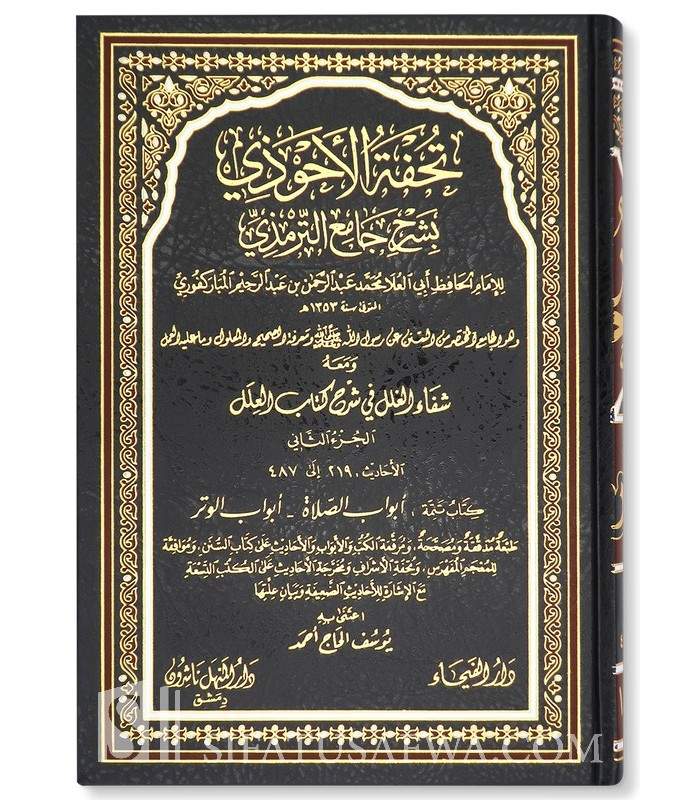 تُحْفَةُ الأَحْوَذِي
بِشَرْحِ جَامِعِ التِّرْمِذِيّ
لِلإِمَامِ الحَافِظِ أَبِي العُلَا مُحَمَّد عَبْدِ الرَّحْمٰنِ بنِ عَبْدِ الرَّحِيمِ المُبَارَكْفُورِيِّ
المتوفى سنة ١٣٥٣ هـ
وهو الجامع المختصر من السنن عن رسول الله ﷺ ومعرفة الصحيح والمعلول وما عليه العمل
وَمَعَهُ
شفاء الغلل في شرح كتاب العِلَل
الجزء الثاني
الأحاديث: ٢١٩ إلى ٤٨٧
كتاب تتمة: أبواب الصلاة - أبواب الوتر
طبعة مدققة ومصححة، ومرقمة الكتب والأبواب والأحاديث على كتاب السنن، وموافقة
للمعجم المفهرس، وتحفة الأشراف ومخرجة الأحاديث على الكتب التسعة
مع الإشارة للأحاديث الضعيفة وبيان عللها
اعتنى به
يوسف الحاج أحمد
دار الفيحاء
دار المنهل ناشرون
دمشق
SIFATUSAFWA.COM